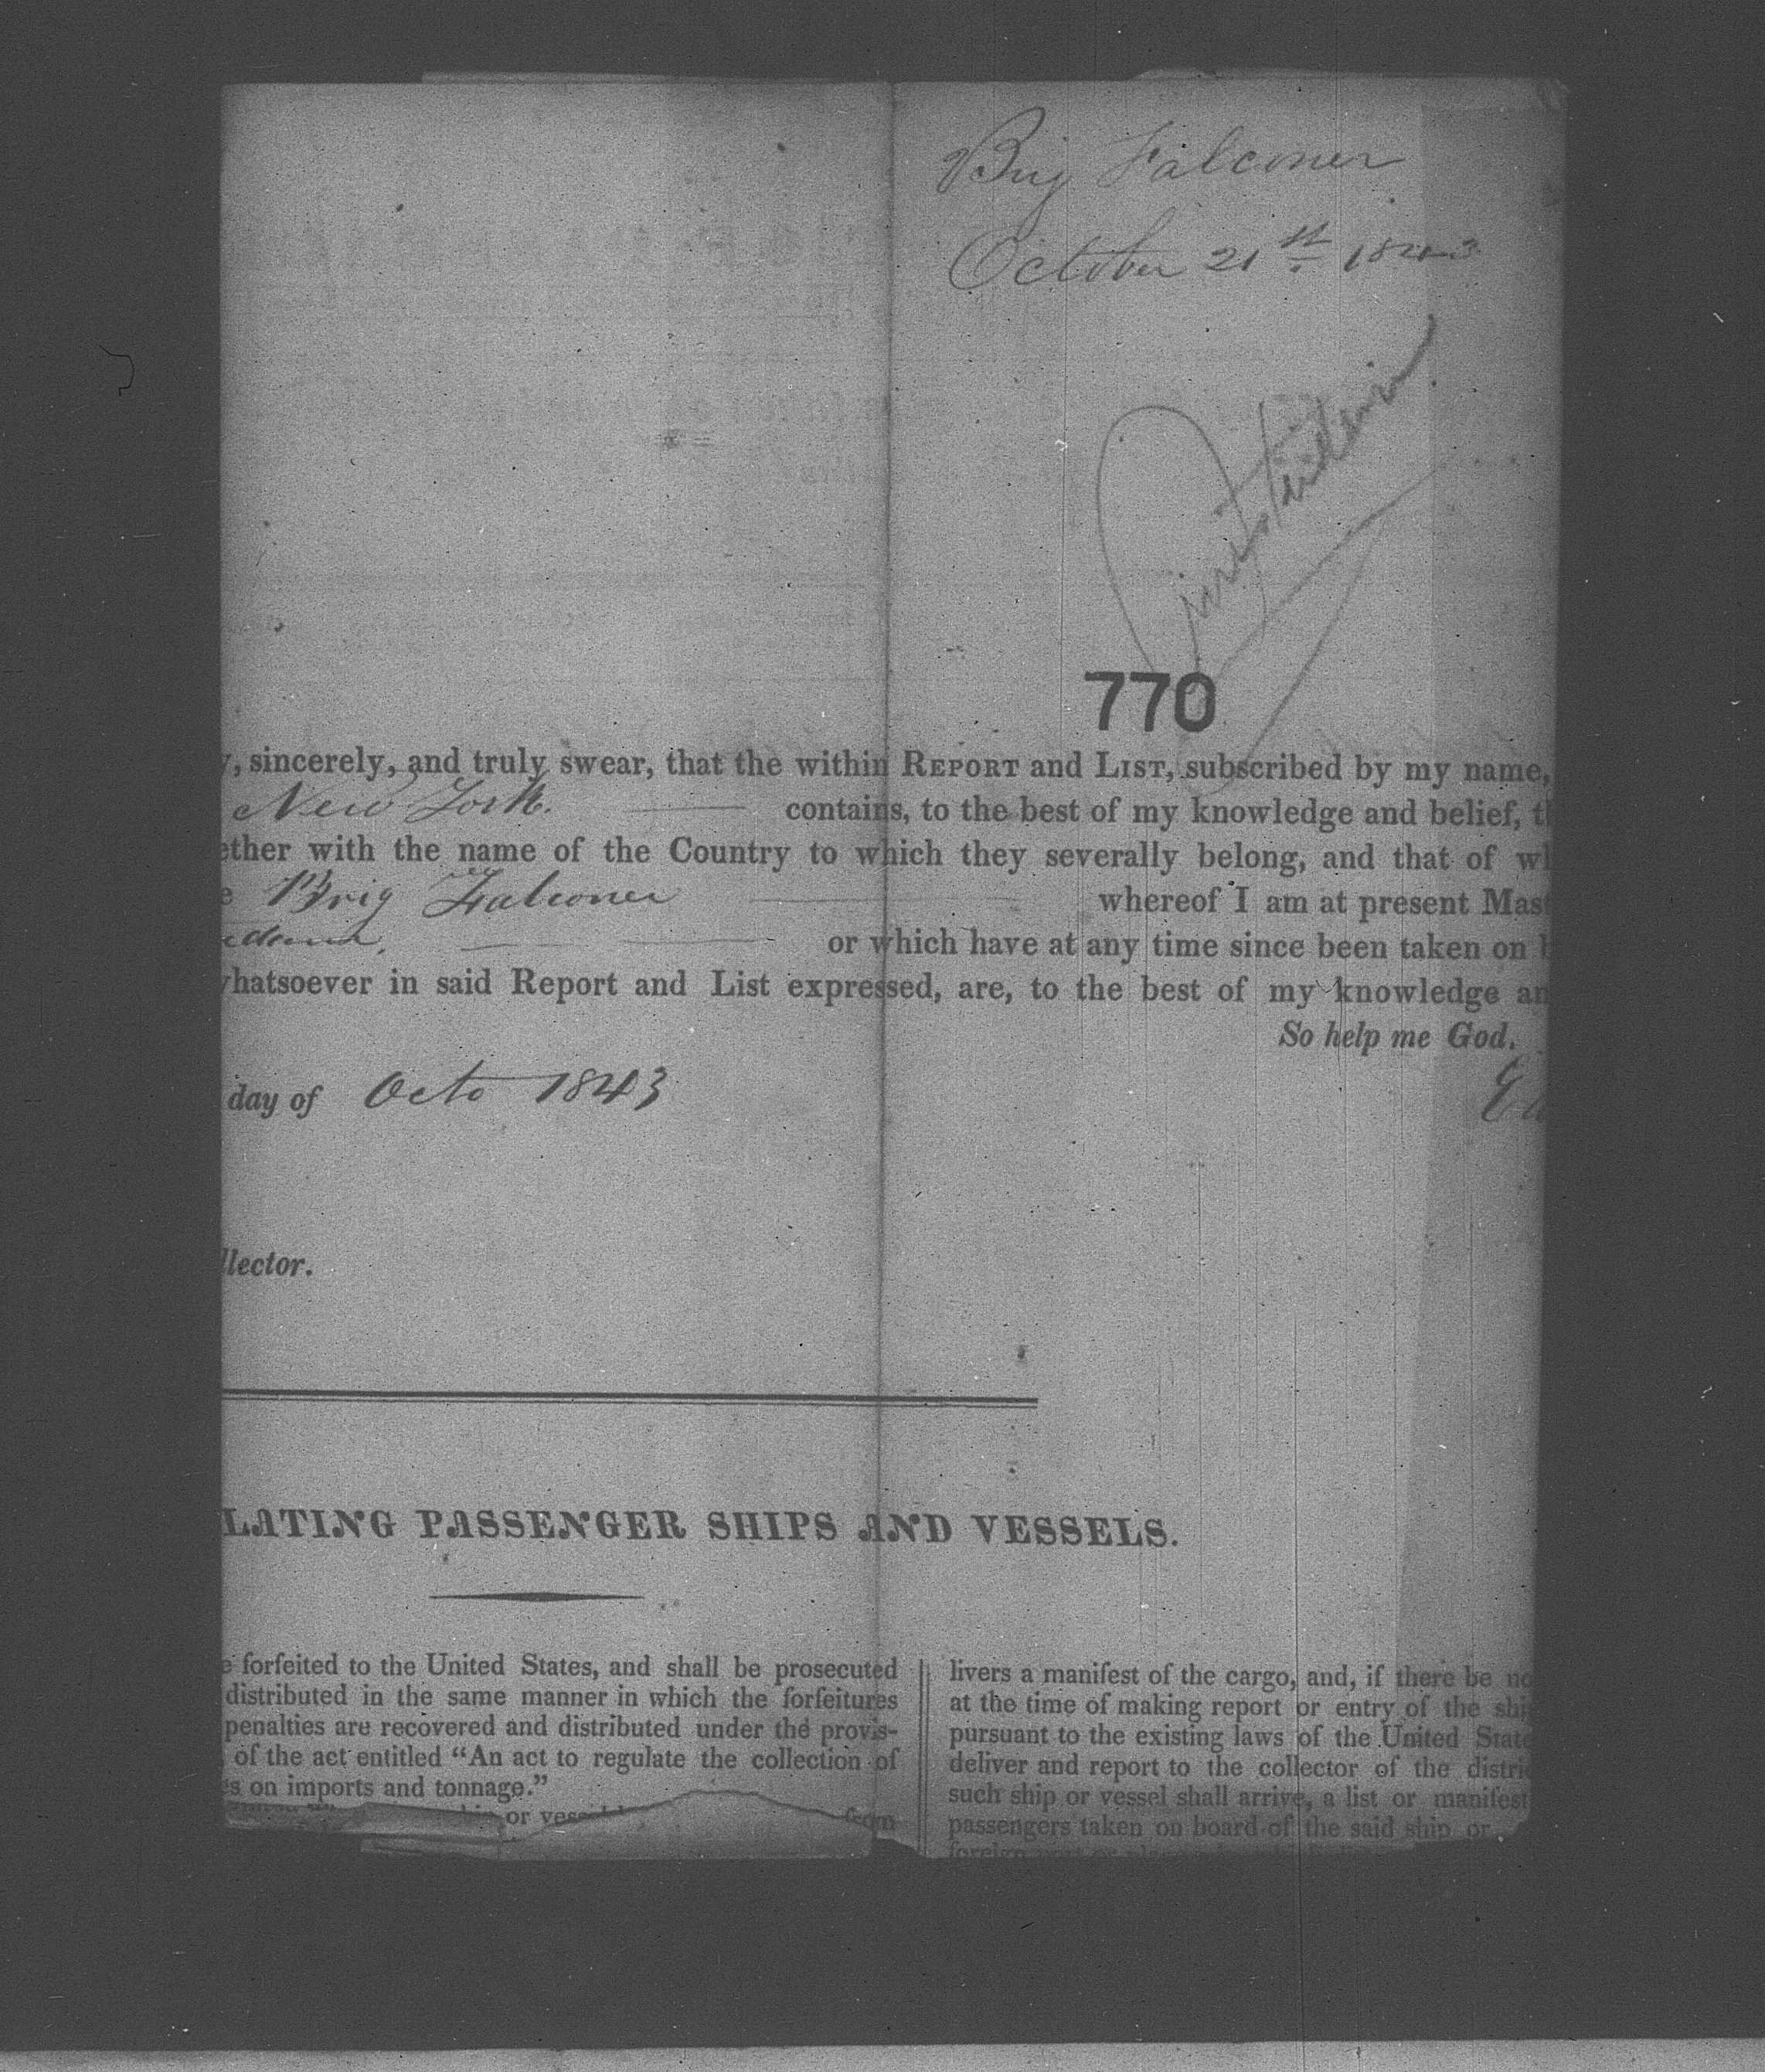 Brig Falconer
October 21st 1843
770
, sincerely, and truly swear, that the within REPORT and LIST, subscribed by my name,
New York. contains, to the best of my knowledge and belief, t
ether with the name of the Country to which they severally belong, and that of wh
e Brig Falconer whereof I am at present Mast
or which have at any time since been taken on b
whatsoever in said Report and List expressed, are, to the best of my knowledge an
So help me God.
day of Octo 1843
llector.
LATING PASSENGER SHIPS AND VESSELS.
e forfeited to the United States, and shall be prosecuted
distributed in the same manner in which the forfeitures
penalties are recovered and distributed under the provis-
of the act entitled “An act to regulate the collection of
s on imports and tonnage.”
or vess
from
livers a manifest of the cargo, and, if there be no
at the time of making report or entry of the ship
pursuant to the existing laws of the United State
deliver and report to the collector of the distri
such ship or vessel shall arrive, a list or manifest
passengers taken on board of the said ship or
foreign